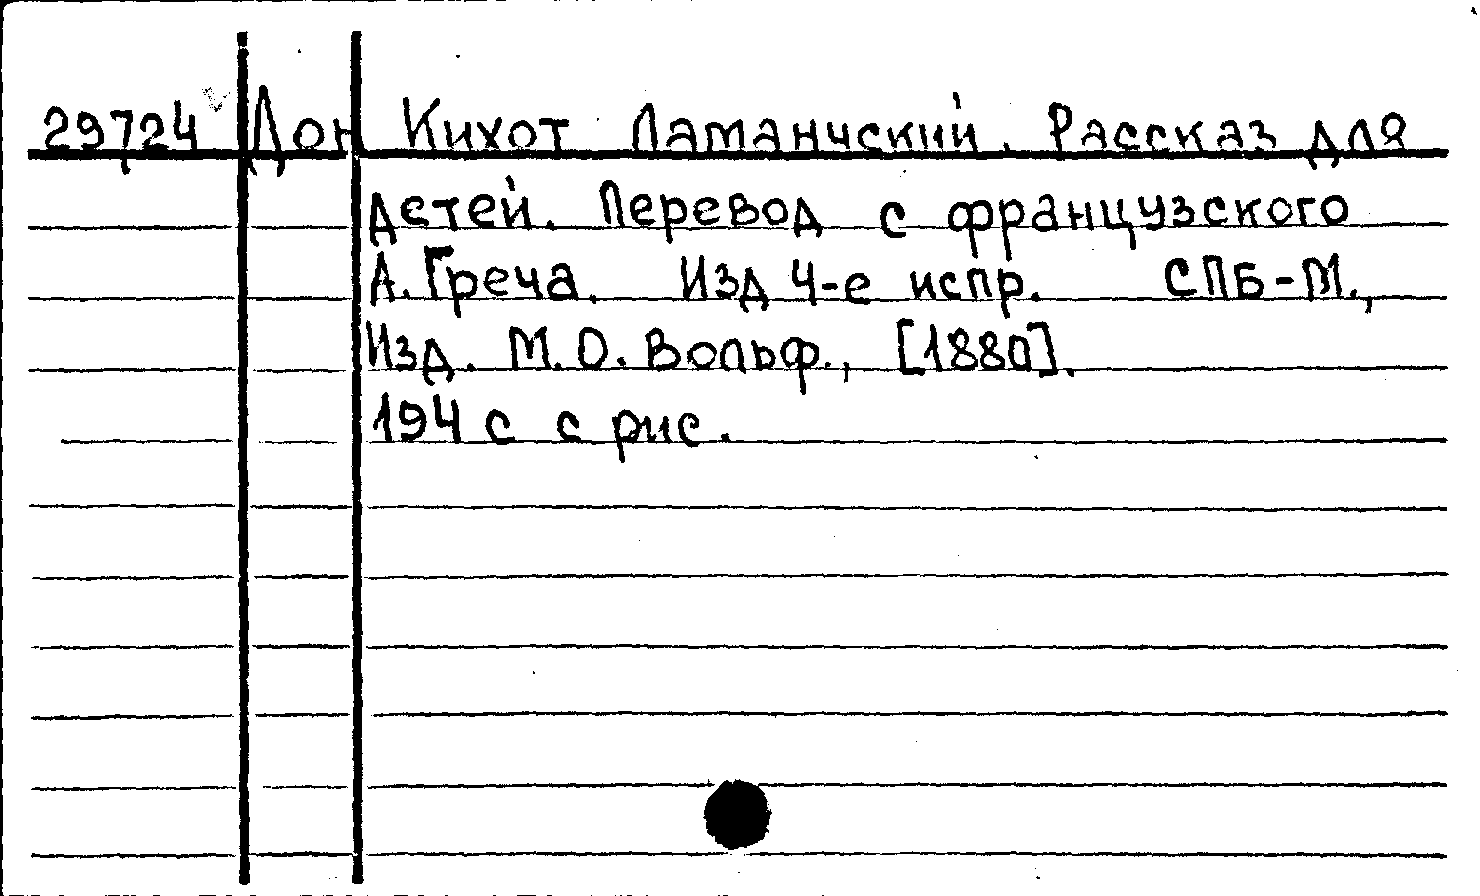 29724 Дон Кихот Ламанчский. Рассказ для
детей. Перевод с французского
А. Греча. Изд 4-е испр. СПБ-М.,
Изд. М.О. Вольф., [1880].
194 с с рис.